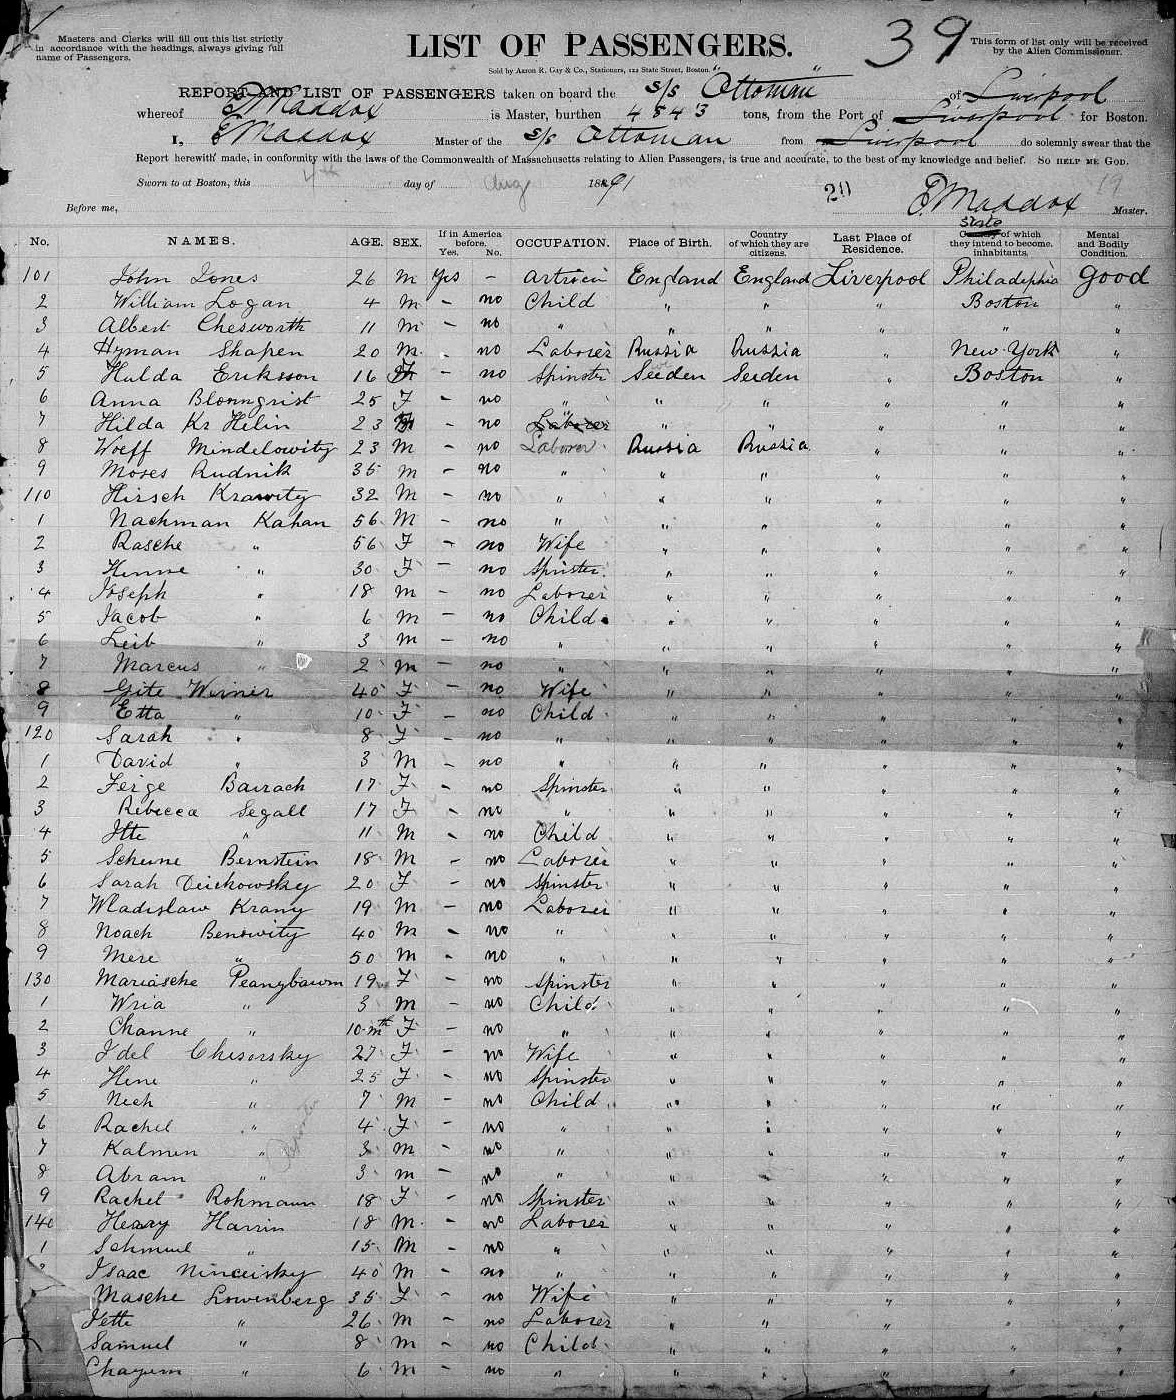 39
Masters and Clerks will fill out this list strictly
in accordance with the headings, always giving full
name of Passengers.
LIST OF PASSENGERS.
This form of list only will be received
by the Alien Commissioner.
Sold by Aaron R. Gay & Co., Stationers, 122 State Street, Boston.
REPORT AND LIST OF PASSENGERS taken on board the s/s "Ottoman" of Liverpool
whereof E Maddox is Master, burthen 4843 tons, from the Port of Liverpool for Boston.
I, E Maddox Master of the s/s Ottoman from Liverpool do solemnly swear that the
Report herewith made, in conformity with the laws of the Commonwealth of Massachusetts relating to Alien Passengers, is true and accurate, to the best of my knowledge and belief. SO HELP ME GOD.
Sworn to at Boston, this 4th day of Aug 1891
20 19
Before me, E. Maddox Master.
No. NAMES. AGE. SEX. If in America before. Yes. No. OCCUPATION. Place of Birth. Country of which they are citizens. Last Place of Residence. State Country of which they intend to become inhabitants. Mental and Bodily Condition.
101 John Jones 26 M Yes - England England Liverpool Philadelphia Good
2 William Logan 4 M - no Child " " " Boston "
3 Albert Chesworth 11 M - no " " " " " "
4 Hyman Shapen 20 M - no Laborer Russia Russia " New York "
5 Hulda Eriksson 16 F - no Spinster Seeden Seeden " Boston "
6 Anna Blomngrist 25 F - no " " " " " "
7 Hilda Kr Helin 23 F - no Laborer " " " " "
8 Woeff Mindelowity 23 M - no Laborer Russia Russia " " "
9 Moses Rudnik 35 M - no " " " " " "
110 Hirsch Krawity 32 M - no " " " " " "
1 Nachman Kahan 56 M - no " " " " " "
2 Rasche " 56 F - no Wife " " " " "
3 Hinne " 30 F - no Spinster " " " " "
4 Joseph " 18 M - no Laborer " " " " "
5 Jacob " 6 M - no Child " " " " "
6 Leib " 3 M - no " " " " " "
7 Marcus " 2 M - no " " " " " "
8 Gite Werner 40 F - no Wife " " " " "
9 Etta " 10 F - no Child " " " " "
120 Sarah " 8 F - no " " " " " "
1 David " 3 M - no " " " " " "
2 Feige 17 F - no Spinster " " " " "
3 Rebecca Segall 17 F - no " " " " " "
4 Itte " 11 M - no Child " " " " "
5 Scheine Bernstein 18 M - no Laborer " " " " "
6 Sarah 20 F - no Spinster " " " " "
7 Wladislaw Krany 19 M - no Laborer " " " " "
8 Noach Benowity 40 M - no " " " " " "
9 Mere " 50 M - no " " " " " "
130 Mariasche Peanybaum 19 F - no Spinster " " " " "
1 Wria " 3 M - no Child " " " " "
2 Channe " 10 mth F - no " " " " " "
3 Idel Chesorsky 27 F - no Wife " " " " "
4 Hene " 25 F - no Spinster " " " " "
5 Nech " 7 M - no Child " " " " "
6 Rachel " 4 F - no " " " " " "
7 Kalmen " 3 M - no " " " " " "
8 Abram " 3 M - no " " " " " "
9 Rachel Rohmann 18 F - no Spinster " " " " "
140 Henry Harrin 18 M - no Laborer " " " " "
1 Schmuel " 15 M - no " " " " " "
2 Isaac 40 M - no " " " " " "
Masche Lowenberg 35 F - no Wife " " " " "
Jette " 26 M - no Laborer " " " " "
Samuel " 8 M - no Child " " " " "
Chayem " 6 M - no " " " " " "